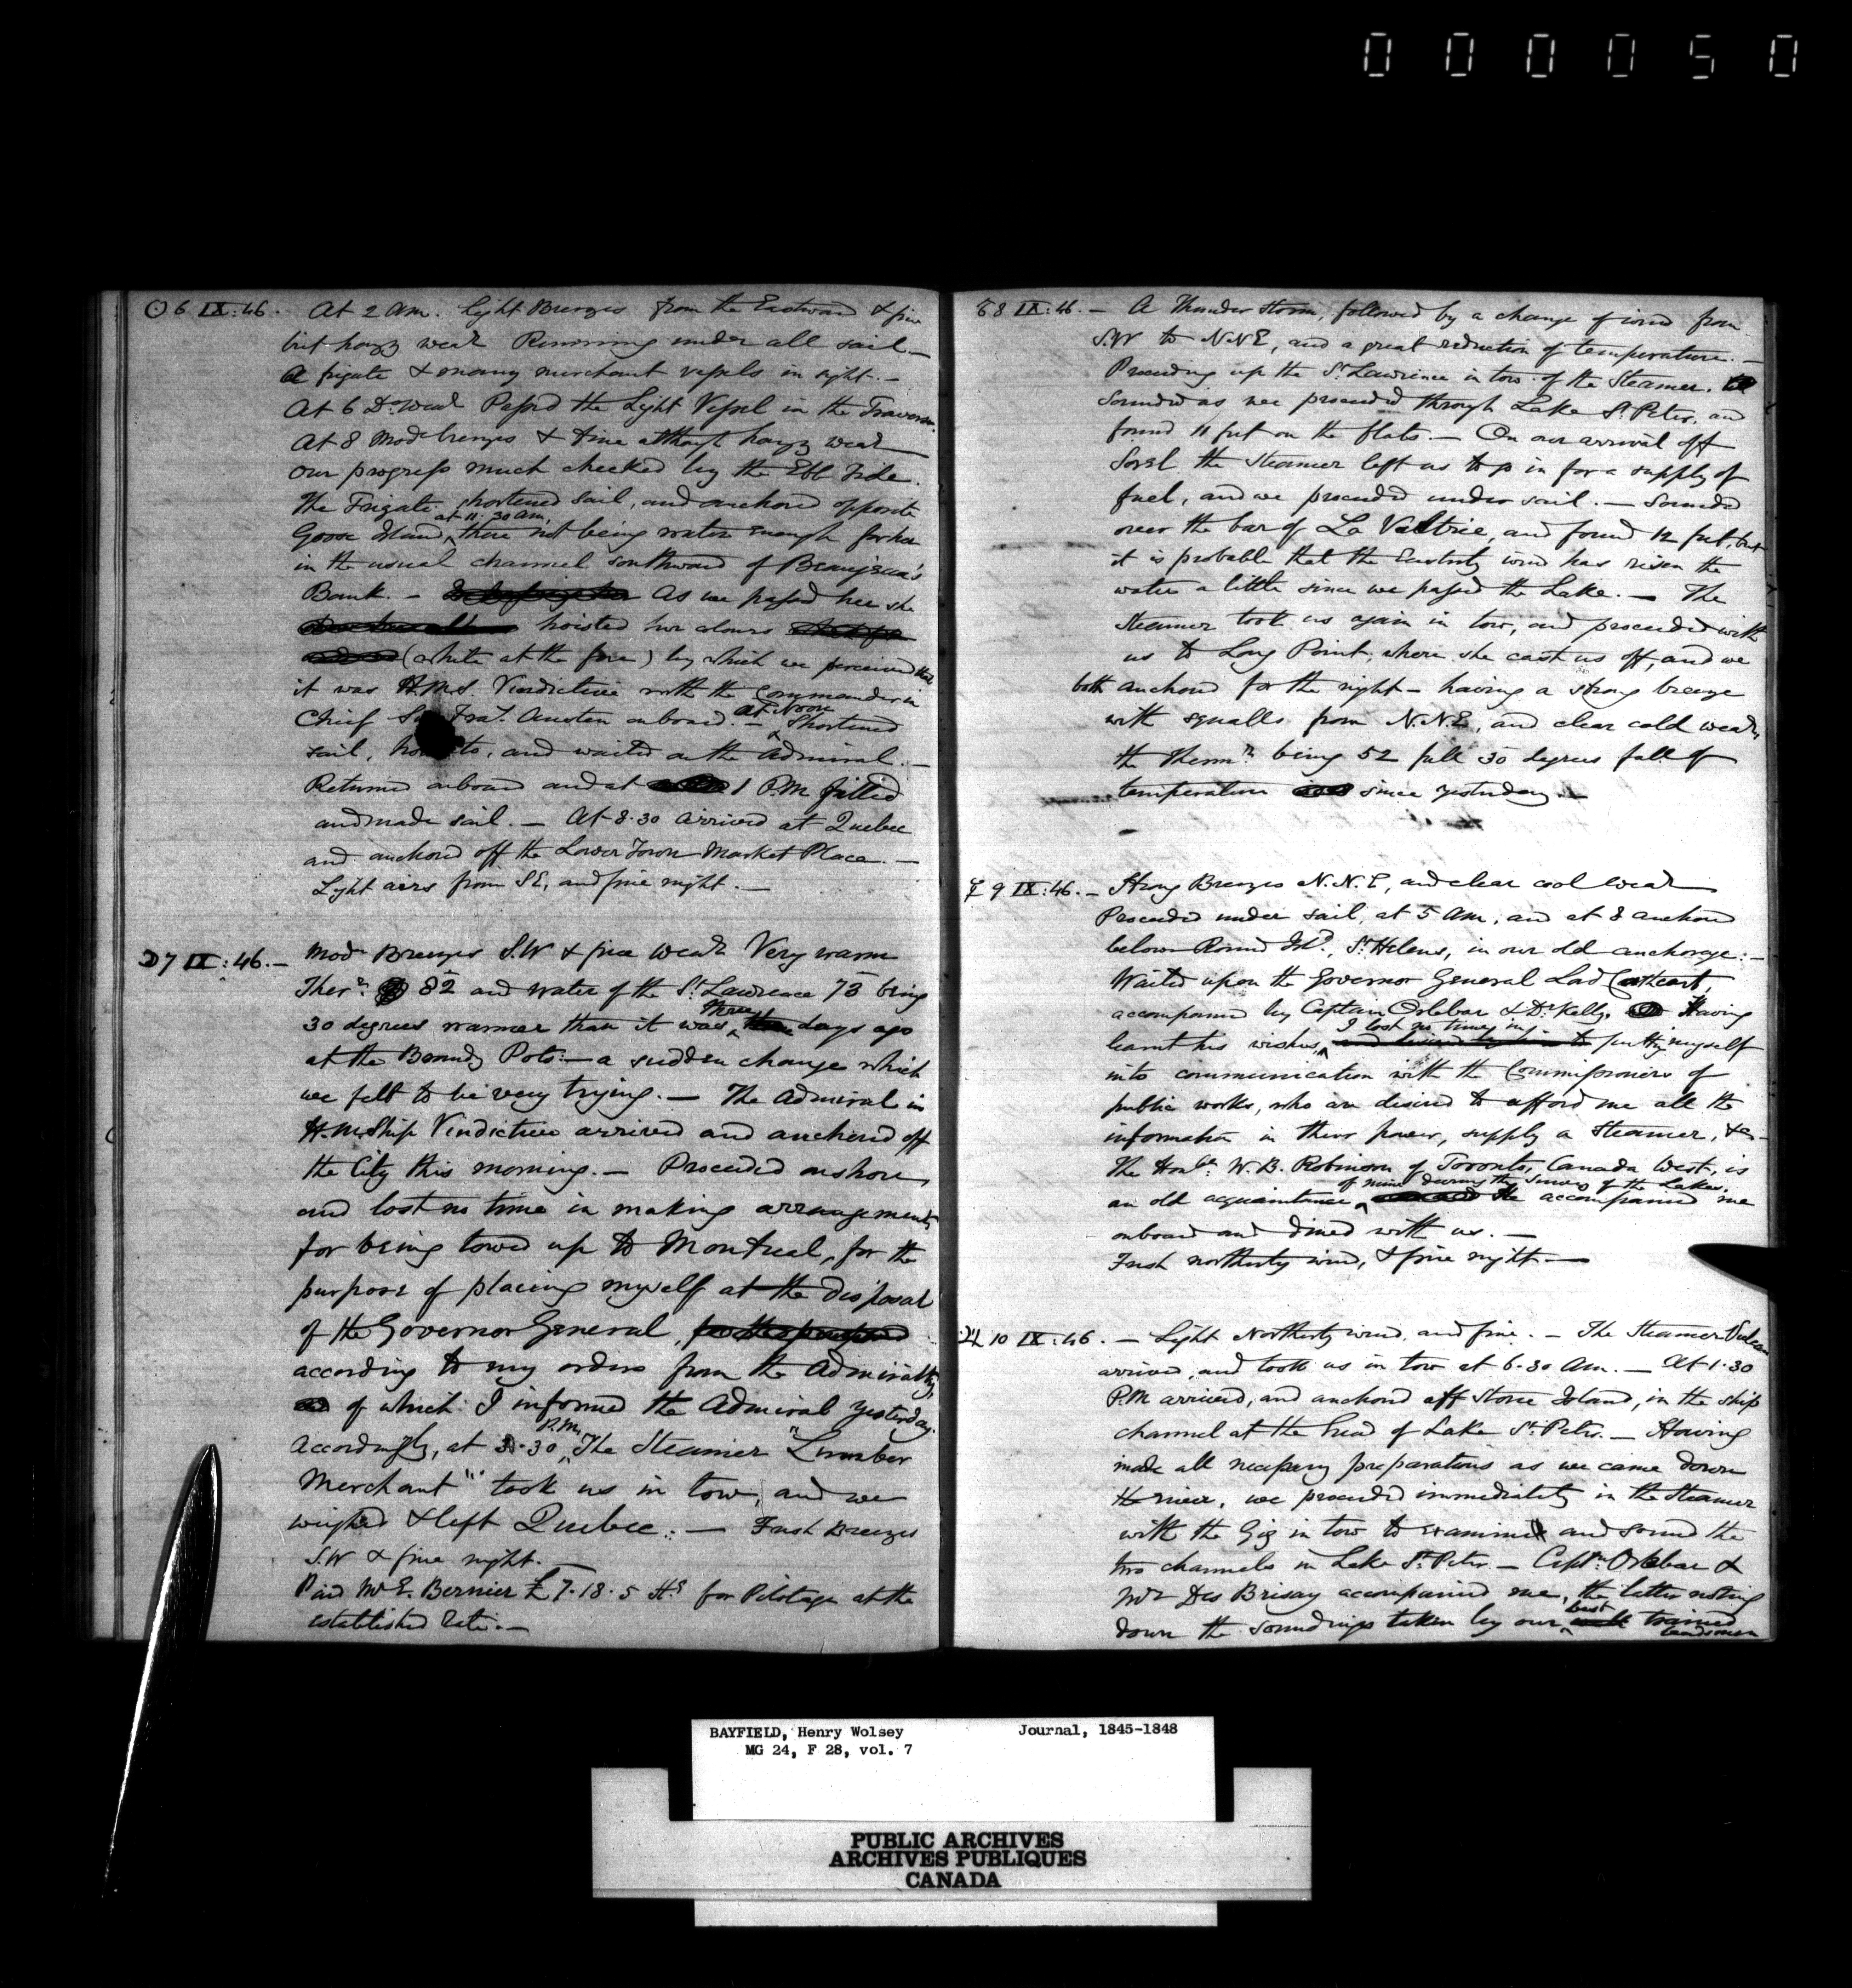 000050
☉ 6 IX:46. At 2 am. Light Breezes from the Eastward & fine
but hazy weatr Running under all sail.—
A frigate & many merchant vessels in sight.—
At 6 Do Weatr Passed the Light Vessel in the Traverse.
At 8 Modr breezes & fine although hazy weatr
our progress much checked by the Ebb Tide.
The Frigate shortened sail, and anchored opposite
Goose Island, at 11.30 am, there not being water enough for her
in the usual channel southward of Beaujeau's
Bank. — As we passed her she
hoisted her colours
(white at the fore) by which we perceived that
it was H.M.S. Vindictive with the Commander in
Chief Fras. Austen onboard. — At Noon Shortened
sail, to, and waited on the Admiral.—
Returned onboard and at 1 P.M. filled
and made sail. — At 8.30 arrived at Quebec
and anchored off the Lower Town Market Place.—
Light airs from SE, and fine night.—
☽ 7 IX:46.— Modr Breezes S.W & fine Weatr Very warm
Therr. 82 and water of the St Lawrence 73 being
30 degrees warmer than it was three days ago
at the Brandy Pots:— a sudden change which
we felt to be very trying.— The Admiral in
H.M. Ship Vindictive arrived and anchored off
the City this morning.— Proceeded onshore,
and lost no time in making arrangements
for being towed up to Montreal, for the
purpose of placing myself at the disposal
of the Governor General,
according to my orders from the Admiralty,
of which I informed the Admiral yesterday.
Accordingly, at 3.30 P.M. The Steamer "Lumber
Merchant" took us in tow, and we
weighed & left Quebec:— Fresh Breezes
S.W & fine night.—
Paid Mr E. Bernier £7.18.5 Hx for Pilotage at the
established rate.—
♂ 8 IX:46.— A Thunder storm, followed by a change of wind from
S.W to N.N.E, and a great reduction of temperature.—
Proceeding up the St Lawrence in tow of the Steamer.
Sounded as we proceeded through Lake St Peter, and
found 11 feet on the flats.— On our arrival off
Sorel the Steamer left us to go in for a supply of
fuel, and we proceeded under sail.— Sounded
over the bar of La Valtrie, and found 12 feet, but
it is probable that the Easterly wind has risen the
water a little since we passed the Lake.— The
Steamer took us again in tow, and proceeded with
us to Long Point, where she cast us off, and we
both anchored for the night — having a strong breeze
with squalls from N.N.E, and clear cold weatr,
the Thermr. being 52 full 30 degrees fall of
temperature since yesterday.—
☿ 9 IX:46.— Strong Breezes N.N.E, and clear cool Weatr
Proceeded under sail, at 5 am, and at 8 anchored
below Round Isld, St Helens, in our old anchorage:—
Waited upon the Governor General Lord Cathcart,
accompanied by Captain Orlebar & Dr Kelly. Having
learnt his wishes, I lost no time in putting myself
into communication with the Commissioners of
public works, who are desired to afford me all the
information in their power, supply a Steamer, &c—
The Honble: W.B. Robinson of Toronto, Canada West, is
an old acquaintance of mine during the Survey of the Lakes. He accompanied me
onboard and dined with us.—
Fresh northerly wind, & fine night.—
♃ 10 IX:46.— Light Northerly wind, and fine.— The Steamer Vulcan
arrived, and took us in tow at 6.30 am.— At 1.30
P.M arrived, and anchored off Stone Island, in the ship
channel at the head of Lake St Peter.— Having
made all necessary preparations as we came down
the river, we proceeded immediately in the Steamer
with the Gig in tow to examine and sound the
two channels in Lake St Peter.— Captn Orlebar &
Mr Des Brisay accompanied me, the latter noting
down the soundings taken by our best trained
leadsmen
BAYFIELD, Henry Wolsey Journal, 1845-1848
MG 24, F 28, vol. 7
PUBLIC ARCHIVES
ARCHIVES PUBLIQUES
CANADA